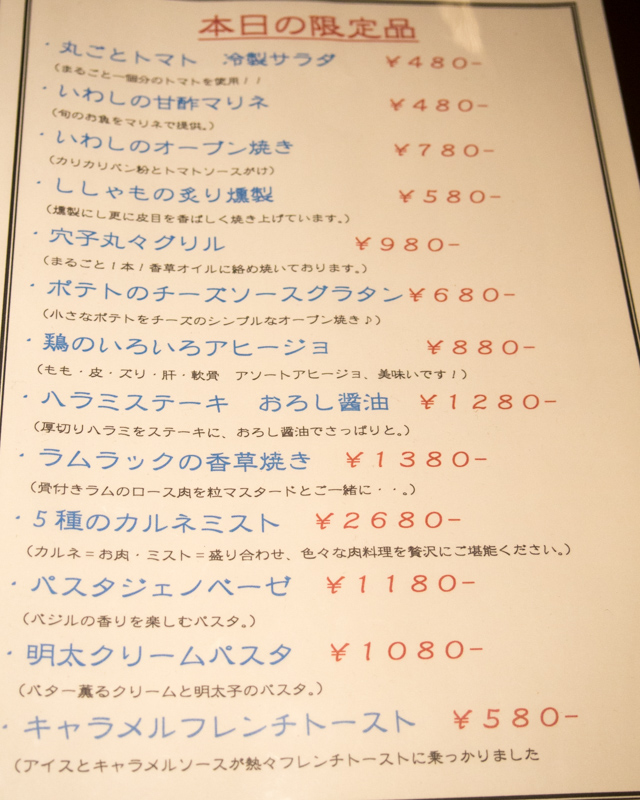 本日の限定品
・丸ごとトマト　冷製サラダ　￥480-
（まるごと一個分のトマトを使用！！
・いわしの甘酢マリネ　￥480-
（旬のお魚をマリネで提供。）
・いわしのオーブン焼き　￥780-
（カリカリパン粉とトマトソースがけ）
・ししゃもの炙り燻製　￥580-
（燻製にし更に皮目を香ばしく焼き上げています。）
・穴子丸々グリル　￥980-
（まるごと１本！香草オイルに絡め焼いております。）
・ポテトのチーズソースグラタン￥680-
（小さなポテトをチーズのシンプルなオーブン焼き♪）
・鶏のいろいろアヒージョ　￥880-
（もも・皮・ズリ・肝・軟骨　アソートアヒージョ、美味いです！）
・ハラミステーキ　おろし醤油　￥1280-
（厚切りハラミをステーキに、おろし醤油でさっぱりと。）
・ラムラックの香草焼き　￥1380-
（骨付きラムのロース肉を粒マスタードとご一緒に・・。）
・５種のカルネミスト　￥2680-
（カルネ＝お肉・ミスト＝盛り合わせ、色々な肉料理を贅沢にご堪能ください。）
・パスタジェノベーゼ　￥1180-
（バジルの香りを楽しむパスタ。）
・明太クリームパスタ　￥1080-
（バター薫るクリームと明太子のパスタ。）
・キャラメルフレンチトースト　￥580-
（アイスとキャラメルソースが熱々フレンチトーストに乗っかりました